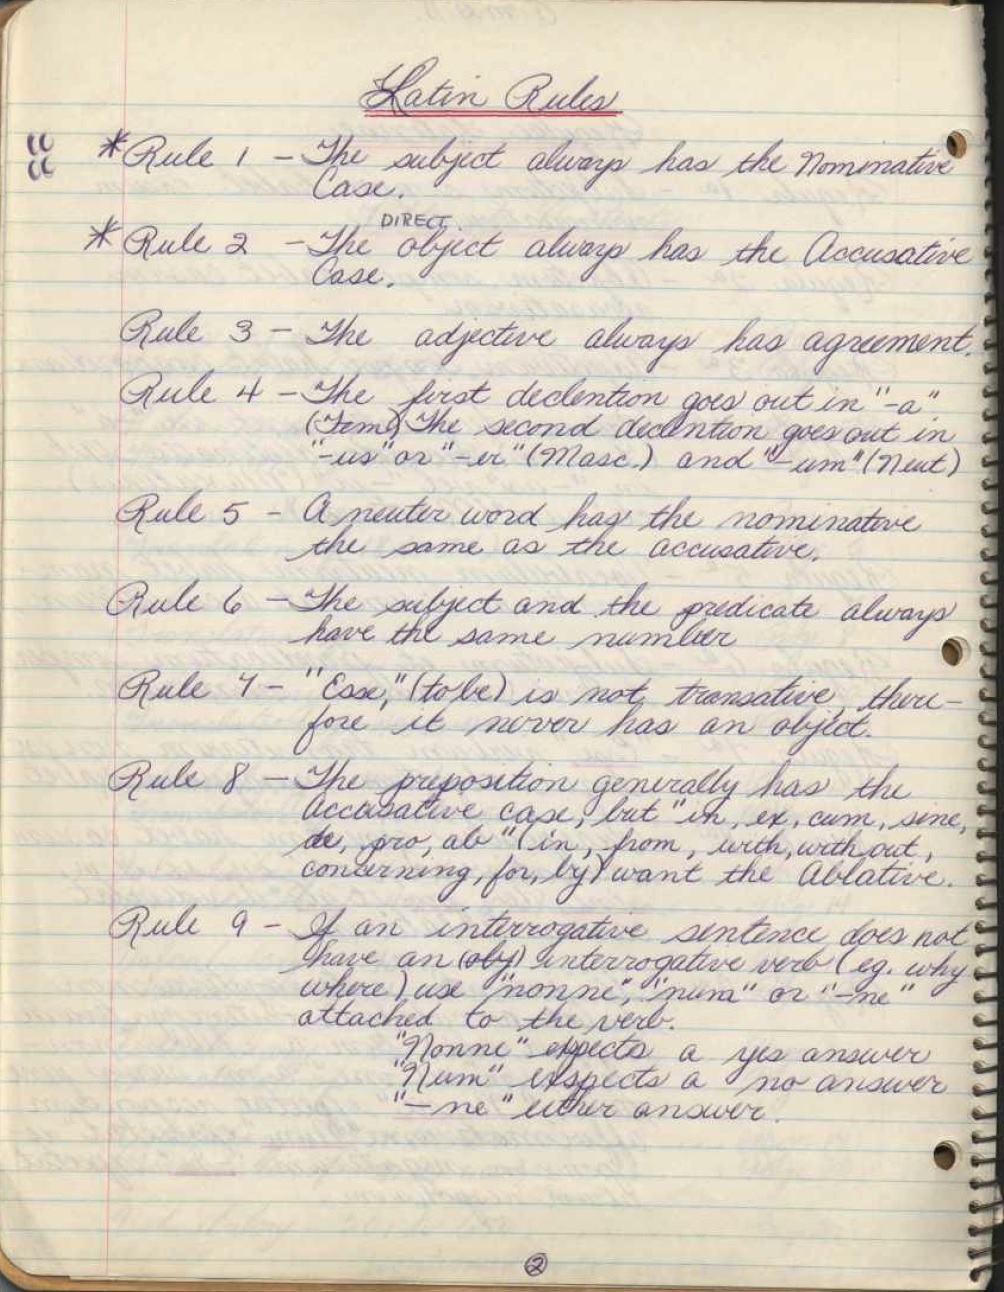 Latin Rules
*Rule 1 - The subject always has the Nominative
Case.
DIRECT
*Rule 2 - The object always has the Accusative
Case.
Rule 3 - The adjective always has agreement.
Rule 4 - The first declention goes out in "-a"
(Fem) The second declention goes out in
"-us" or "-er" (Masc.) and "-um" (Neut)
Rule 5 - A neuter word has the nominative
the same as the accusative.
Rule 6 - The subject and the predicate always
have the same number
Rule 7 - "Esse," (to be) is not transative, there-
fore it never has an object.
Rule 8 - The preposition generally has the
accusative case, but "in, ex, cum, sine,
de, pro, ab" (in, from, with, without,
concerning, for, by) want the Ablative.
Rule 9 - If an interrogative sentence does not
have an (obj) interrogative verb (eg. why
where), use "nonne", "num" or "-ne"
attached to the verb.
"Nonne" expects a yes answer
"Num" exspects a no answer
"-ne" either answer.
2